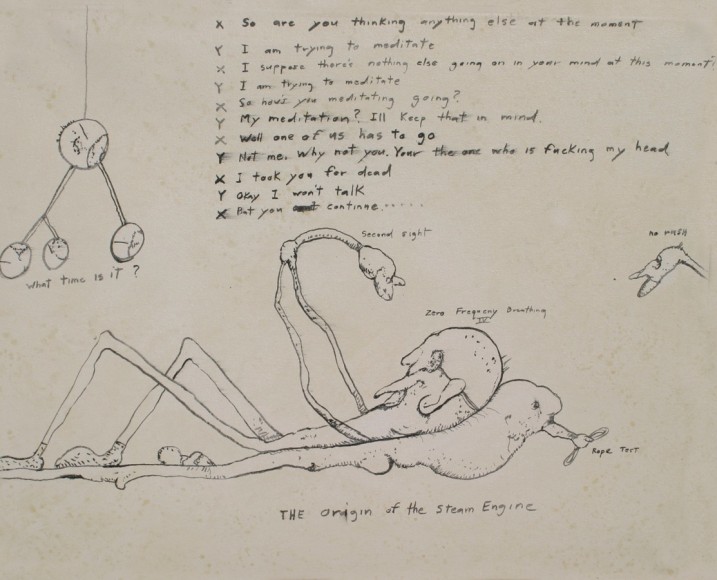 X So are you thinking anything else at the moment
Y I am trying to meditate
X I suppose there's nothing else going on in your mind at this moment?
Y I am trying to meditate
X So how's you meditating going?
Y My meditation? Ill keep that in mind.
X Well one of us has to go
Y Not me. Why not you. Your the one who is fucking my head
X I took you for dead
Y Okay I won't talk
X But you continue.....
Second sight
no rush
What time is it ?
Zero Frequency Breathing
IV
Rope Test
THE Origin of the Steam Engine